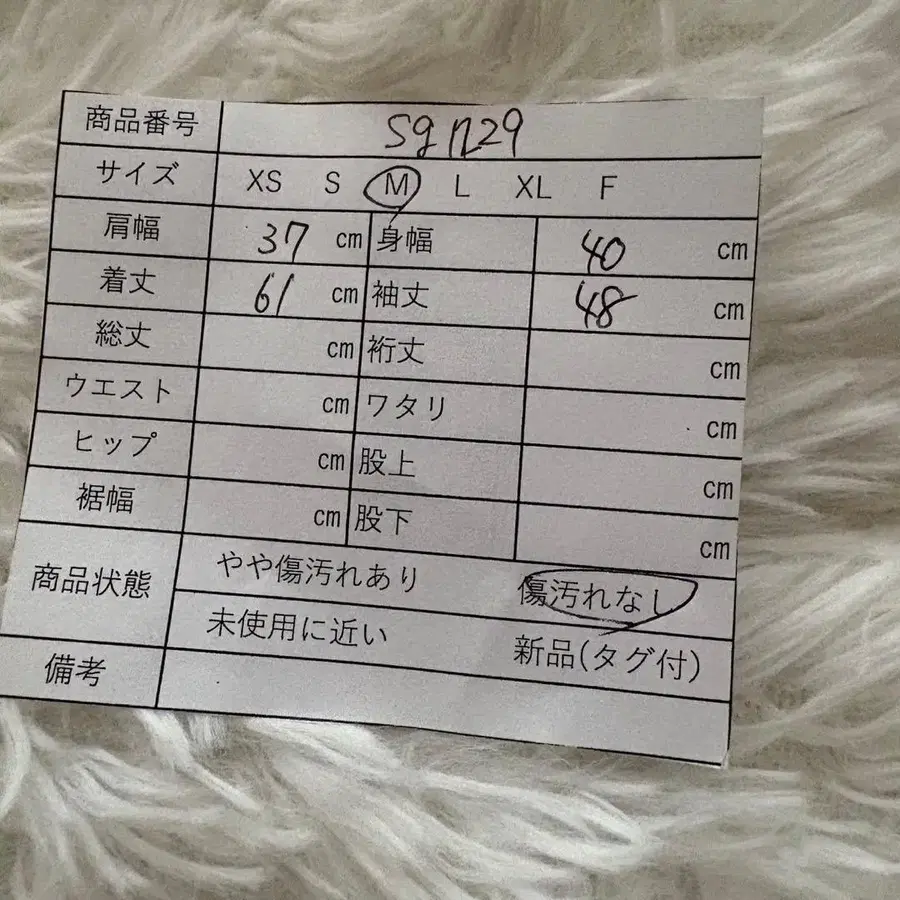 商品番号 sg n29
サイズ XS S M L XL F
肩幅 37 cm 身幅 40 cm
着丈 61 cm 袖丈 48 cm
総丈 cm 裄丈 cm
ウエスト cm ワタリ cm
ヒップ cm 股上 cm
裾幅 cm 股下 cm
商品状態 やや傷汚れあり 傷汚れなし
未使用に近い 新品(タグ付)
備考